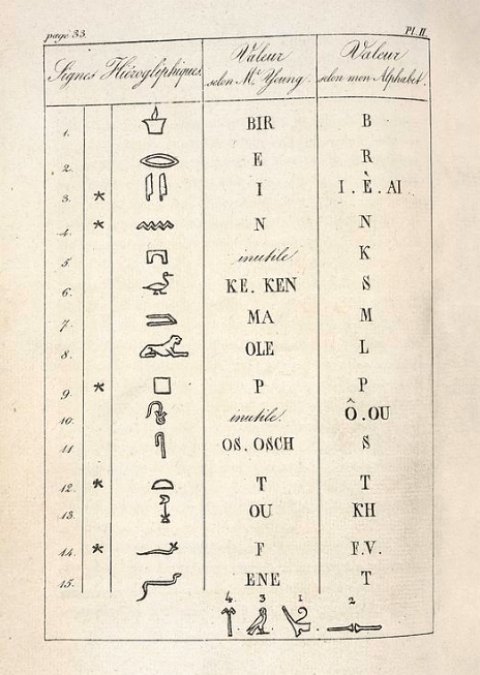 page 33. Pl. II.
Signes Hiérogliphiques. Valeur selon Mr. Young. Valeur selon mon Alphabet.
1. BIR B
2. E R
3. * I I . È . AI
4. * N N
5. inutile K
6. KE . KEN S
7. MA M
8. OLE L
9. * P P
10. inutile. Ô . OU
11 OS . OSCH S
12. * T T
13. OU KH
14. * F F.V.
15. ENE T
4 3 1 2